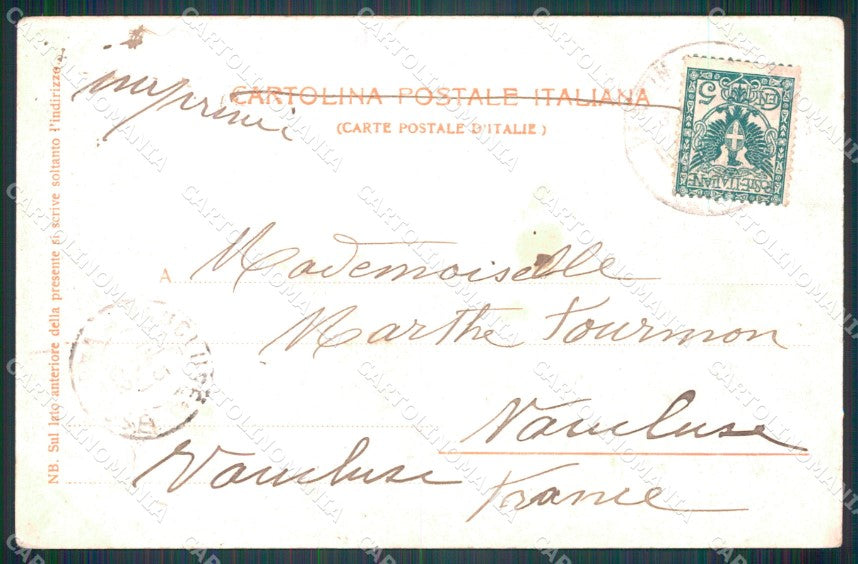 imprimé
CARTOLINA POSTALE ITALIANA
(CARTE POSTALE D'ITALIE)
NB. Sul lato anteriore della presente si scrive soltanto l'indirizzo.
5
POSTE ITALIANE
A Mademoiselle
Marthe Fourmon
Vaucluse
Vaucluse
France
CARTOLINOMANIA